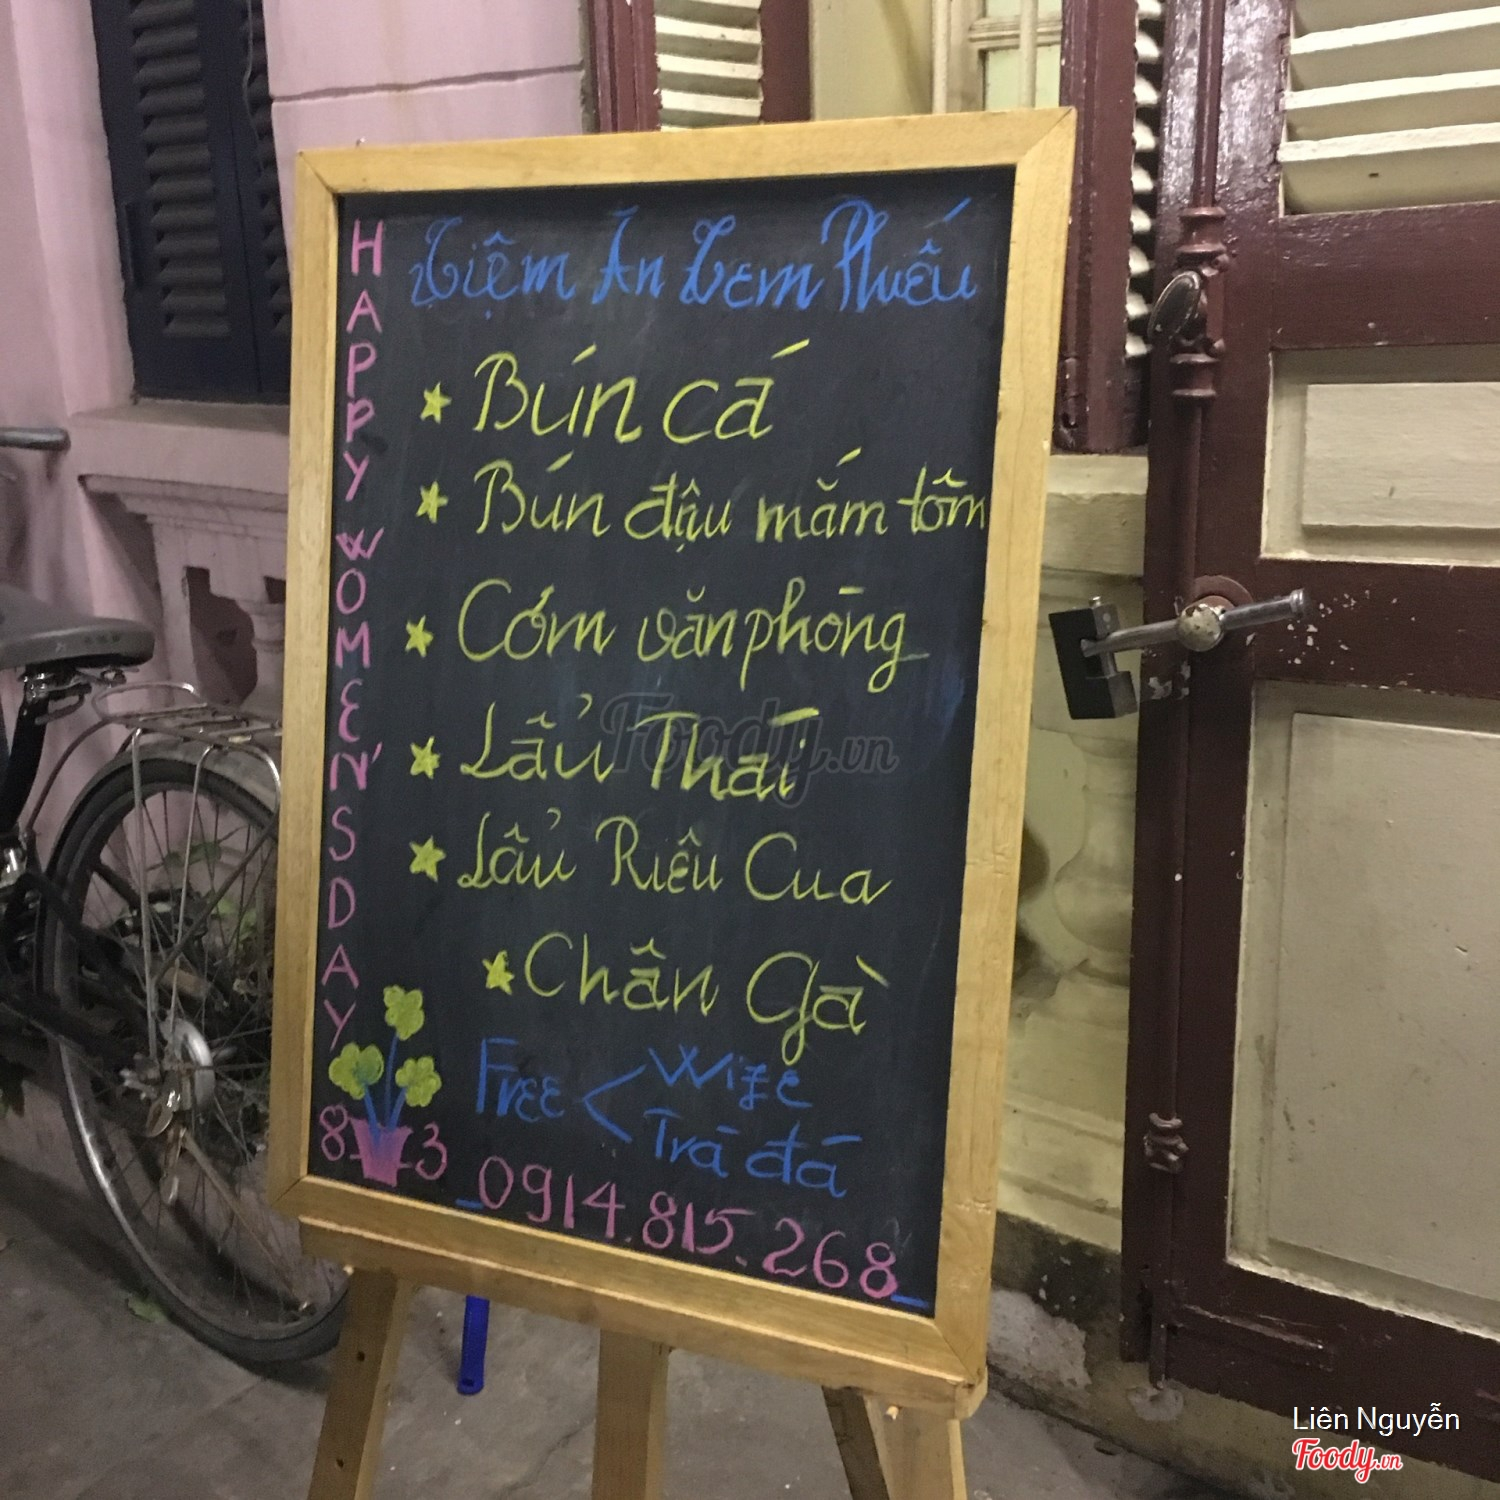 HAPPY WOMEN'S DAY
8-3
Tiệm Ăn Tem Phiếu
Bún cá
Bún đậu mắm tôm
Cơm văn phòng
Lẩu Thái
Lẩu Riêu Cua
Chân Gà
Free < Wife
Trà đá
0914.815.268
Foody.vn
Liên Nguyễn
Foody.vn